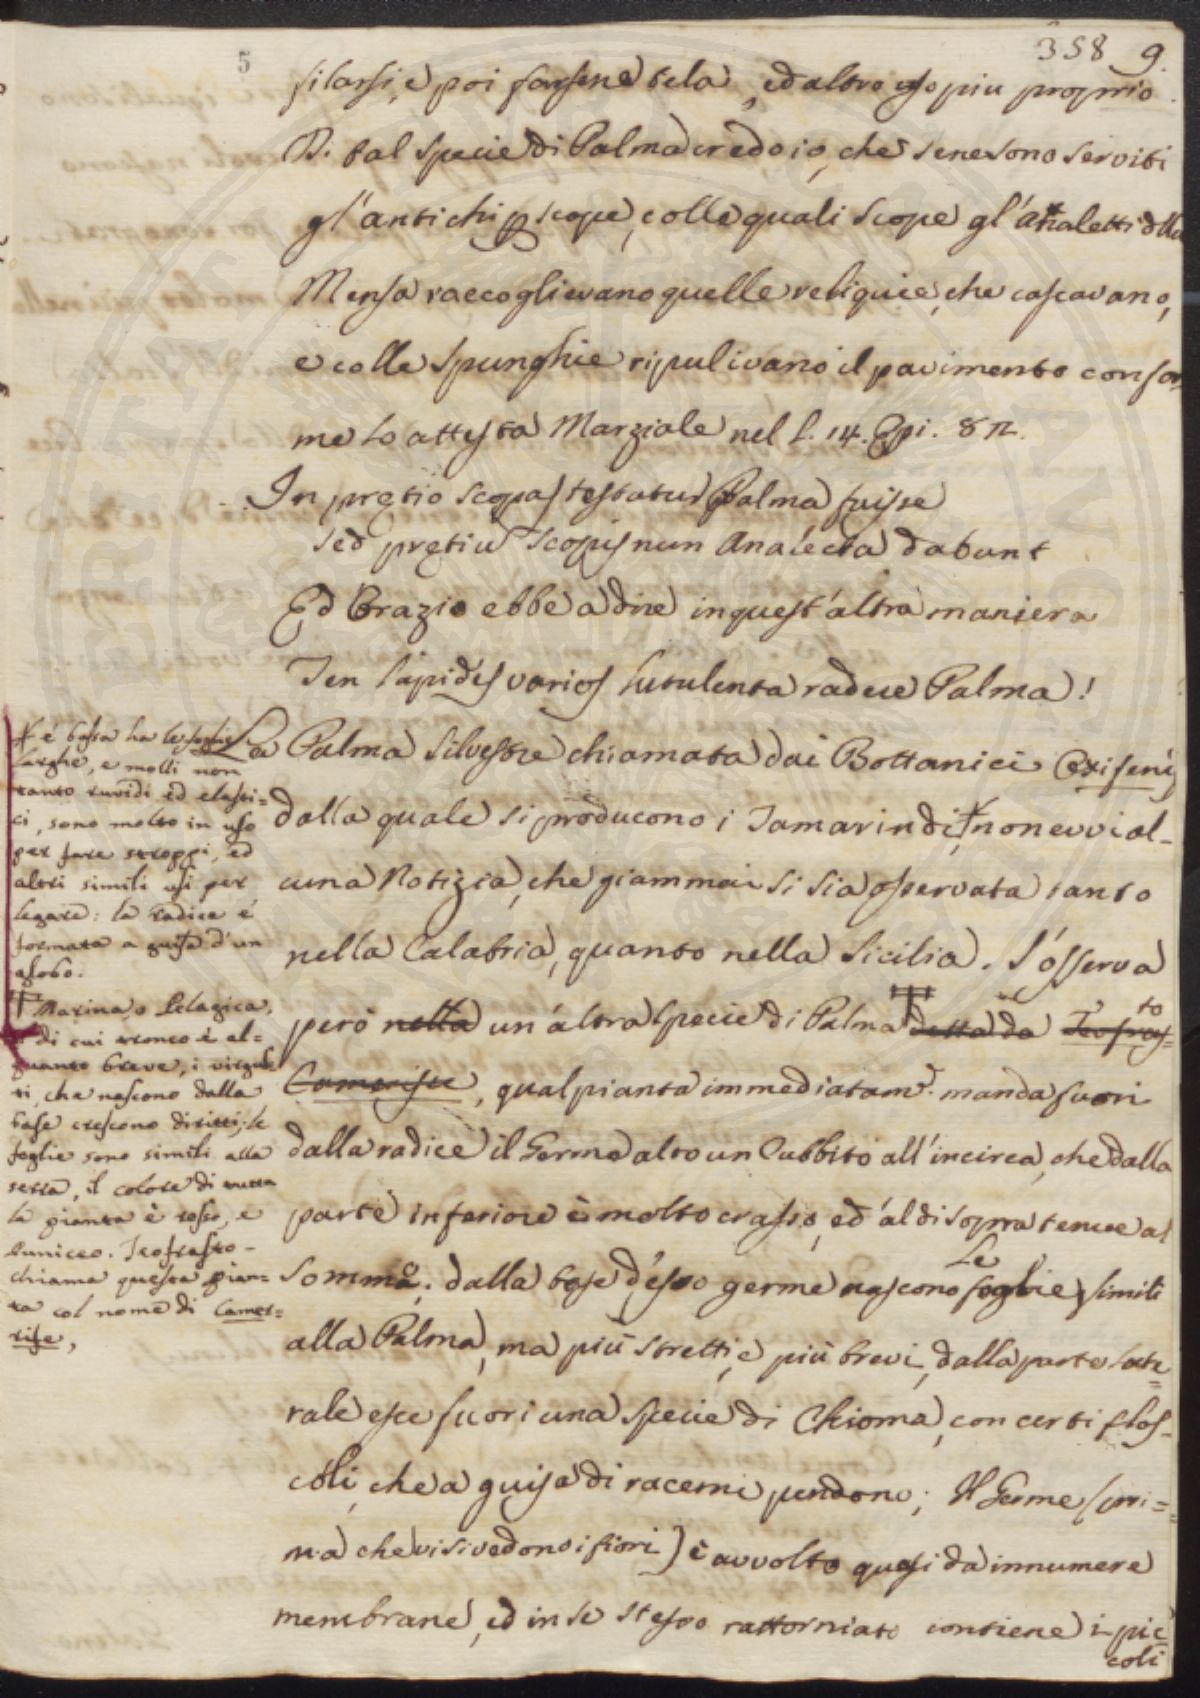 358 9.
5
filarsi, e poi farsene tela, ed altro uso piu proprio
Di tal specie di Palma credo io, che sene sono serviti
gl'antichi p scope, colle quali scope gl'Analetti dlla
Mensa raccoglievano quelle reliquie, che cascavano,
e colle Spunghie ripulivano il pavimento confor
me lo attesta Marziale nel l. 14. Epi. 82.
In pretio scopas testatur Palma fuisse
sed pretiū scopis nun Analecta dabunt
Ed Orazio ebbe a dire in quest'altra maniera
Ten lapides varios lutulenta radere Palma!
La Palma silvestre chiamata dai Bottanici
dalla quale si producono i Tamarindi, non evvi al-
cuna Notizia, che giammai si sia osservata tanto
nella Calabria, quanto nella Sicilia. S'osserva
però nella un'altra specie di Palma detta da Teofras-
to
, qual pianta immediatam.e manda fuori
dalla radice il Germe alto un Cubbito all'incirca, che dalla
parte inferiore è molto crasso, ed al di sopra tenue al
sommo. dalla base d'esso germe nascono Le foglie simili
alla Palma, ma più stretti, e più brevi, dalla parte late
rale esce fuori una specie di Chioma, con certi flos-
coli, che a guisa di racemi pendono; Il Germe (pri=
ma che vi si vedono i fiori) è avvolto quasi da innumere
membrane, ed in se stesso rattorniato contiene i pic
coli
è bassa ha le foglie
larghe, e molli non
tanto ruvidi ed elasti=
ci, sono molto in uso
per fare stroppi, ed
altri simili usi per
legare: la radice é
formata a guisa d'un
globo.
Marina, o Pelagica,
di cui tronco è al=
quanto breve, i virgul=
ti, che nascono dalla
base crescono diritti; le
foglie sono simili alla
setta, il colore di tutta
la pianta è rosso, e
Puniceo. Teofrasto-
chiama questa pian=
ta col nome di Camer=
rife,